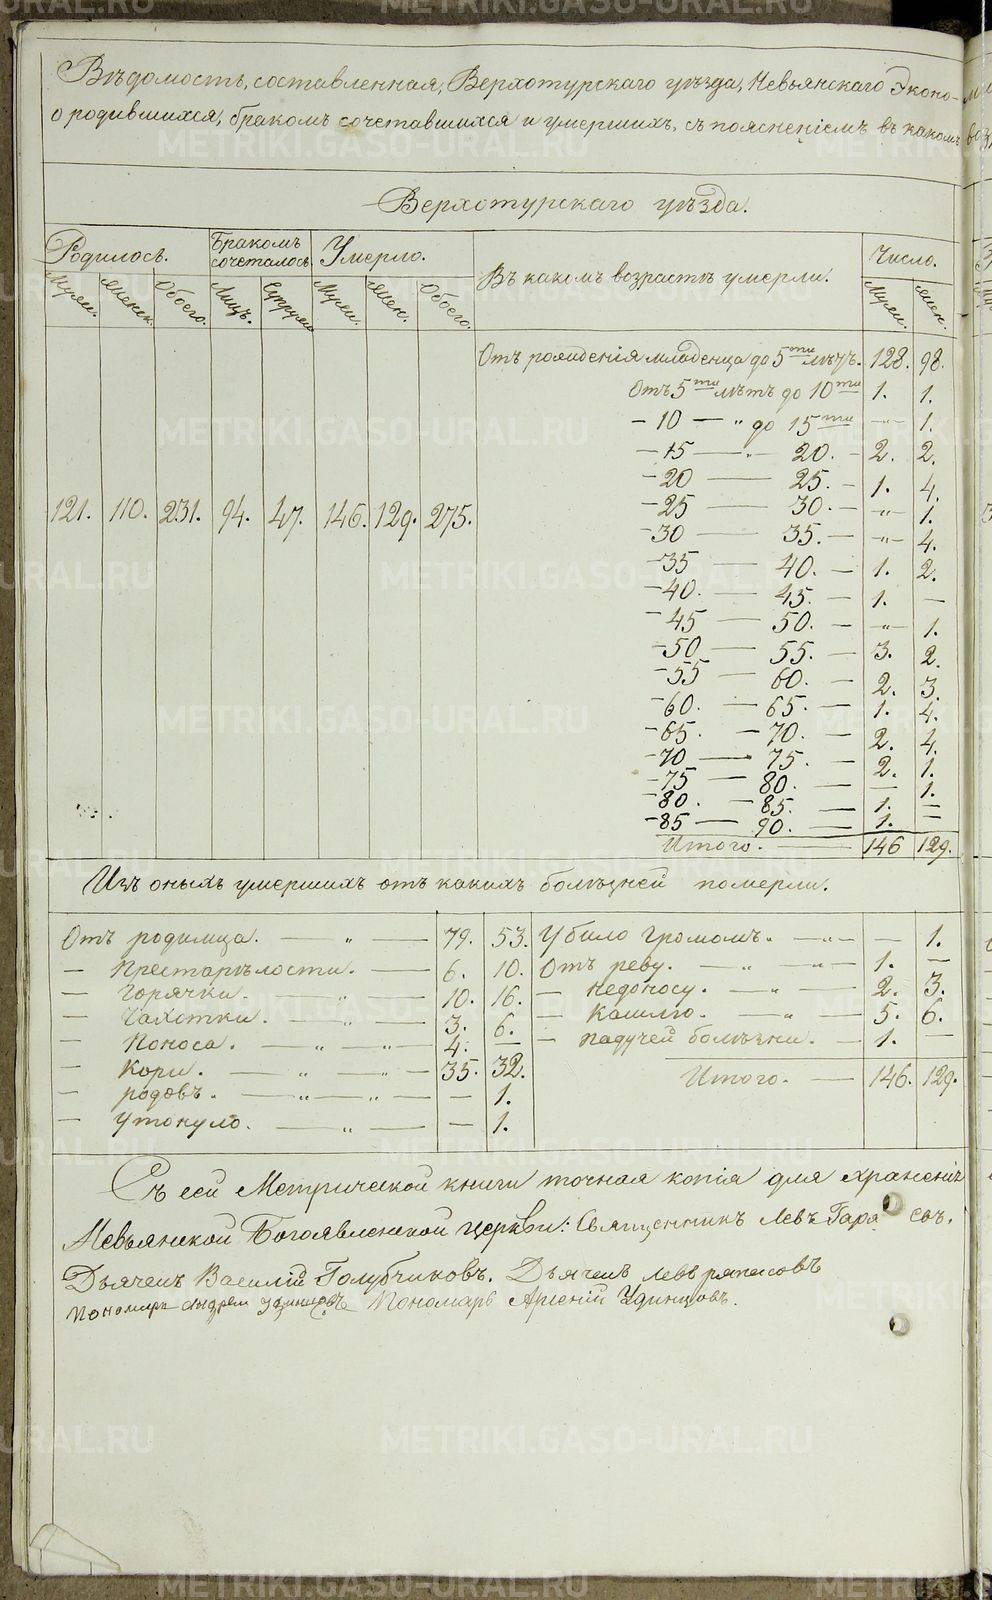 Вѣдомость, составленная, Верхотурскаго уѣзда, Невьянскаго Эконо-
о родившихся, бракомъ сочетавшихся и умершихъ, съ поясненіемъ въ какомъ
Верхотурскаго уѣзда.
Родилось. Бракомъ сочеталось. Умерло. Въ какомъ возрастѣ умерли. Число.
Муж. Женск. Обоего. Лицъ. Супруж. Муж. Жен. Обоего. Муж. Жен.
Отъ рожденія младенца до 5ти лѣтъ. 128. 98.
Отъ 5ти лѣтъ до 10ти 1. 1.
- 10 — „ до 15ти — „ — 1.
- 15 — „ 20. - 2. 2.
- 20 — 25. - 1. 4.
121. 110. 231. 94. 47. 146. 129. 275.
- 25 — 30. - „ - 1.
- 30 — 35. — - „ - 4.
- 35 — 40. — 1. 2.
- 40. — 45. — 1. —
- 45 — 50. — - „ - 1.
- 50 — 55. — 3. 2.
- 55 — 60. — 2. 3.
- 60. — 65. — 1. 4.
- 65. — 70. — 2. 4.
- 70 — 75. — 2. 1.
- 75 — 80. — — 1.
- 80. — 85. — 1. —
- 85 — 90. — 1.
Итого. — 146 129.
Изъ оныхъ умершихъ отъ какихъ болѣзней померли.
Отъ родимца. — „ — 79. 53. Убило громомъ. — „ — — 1.
— Престарѣлости. — 6. 10. Отъ реву. — „ — „ — 1. —
— Горячки. — „ — 10. 16. — недоносу. — „ — 2. 3.
— Чахотки. — „ — 3. 6. — Кашлю. — „ — 5. 6.
— Поноса. — „ — „ — 4. — — падучей болѣзни. — 1. —
— Кори. — „ — „ — 35. 32. Итого. — 146. 129.
— родовъ. — „ — „ — — 1.
— Утонуло. — „ — — 1.
Съ сей Метрической книги точная копія для храненія
Невьянской Богоявленской церкви: Священникъ Левъ
Дьячекъ Василій Голубчиковъ. Дьячекъ Левъ
Пономарь Андрей Удинцовъ Пономарь Арсеній Удинцовъ.
METRIKI.GASO-URAL.RU